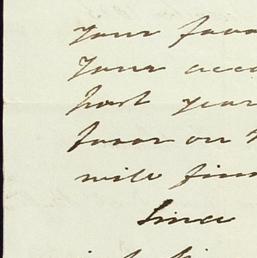 Your favo
Your acco
past year
favor on
will fin
Since